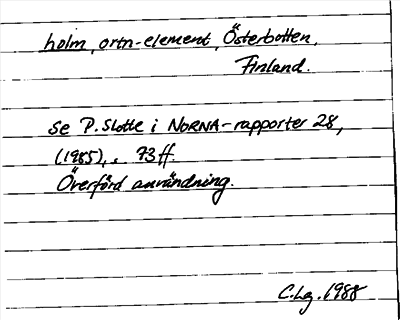 holm, ortn-element, Österbotten,
Finland.
se P. Slotte i NORNA-rapporter 28,
(1985), s. 73 ff.
Överförd användning.
C.Lg. 1988